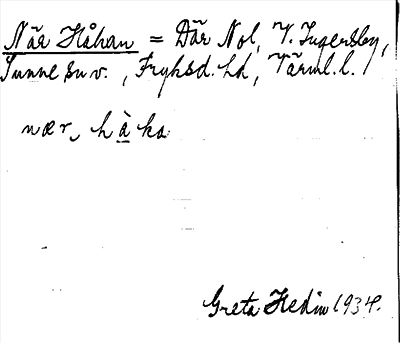 När Håkan = Där Nol, V. Ingersby,
Sunne sn v., Fryksd. hd, Värml. l.
nær, hàka
Greta Hedin 1934.